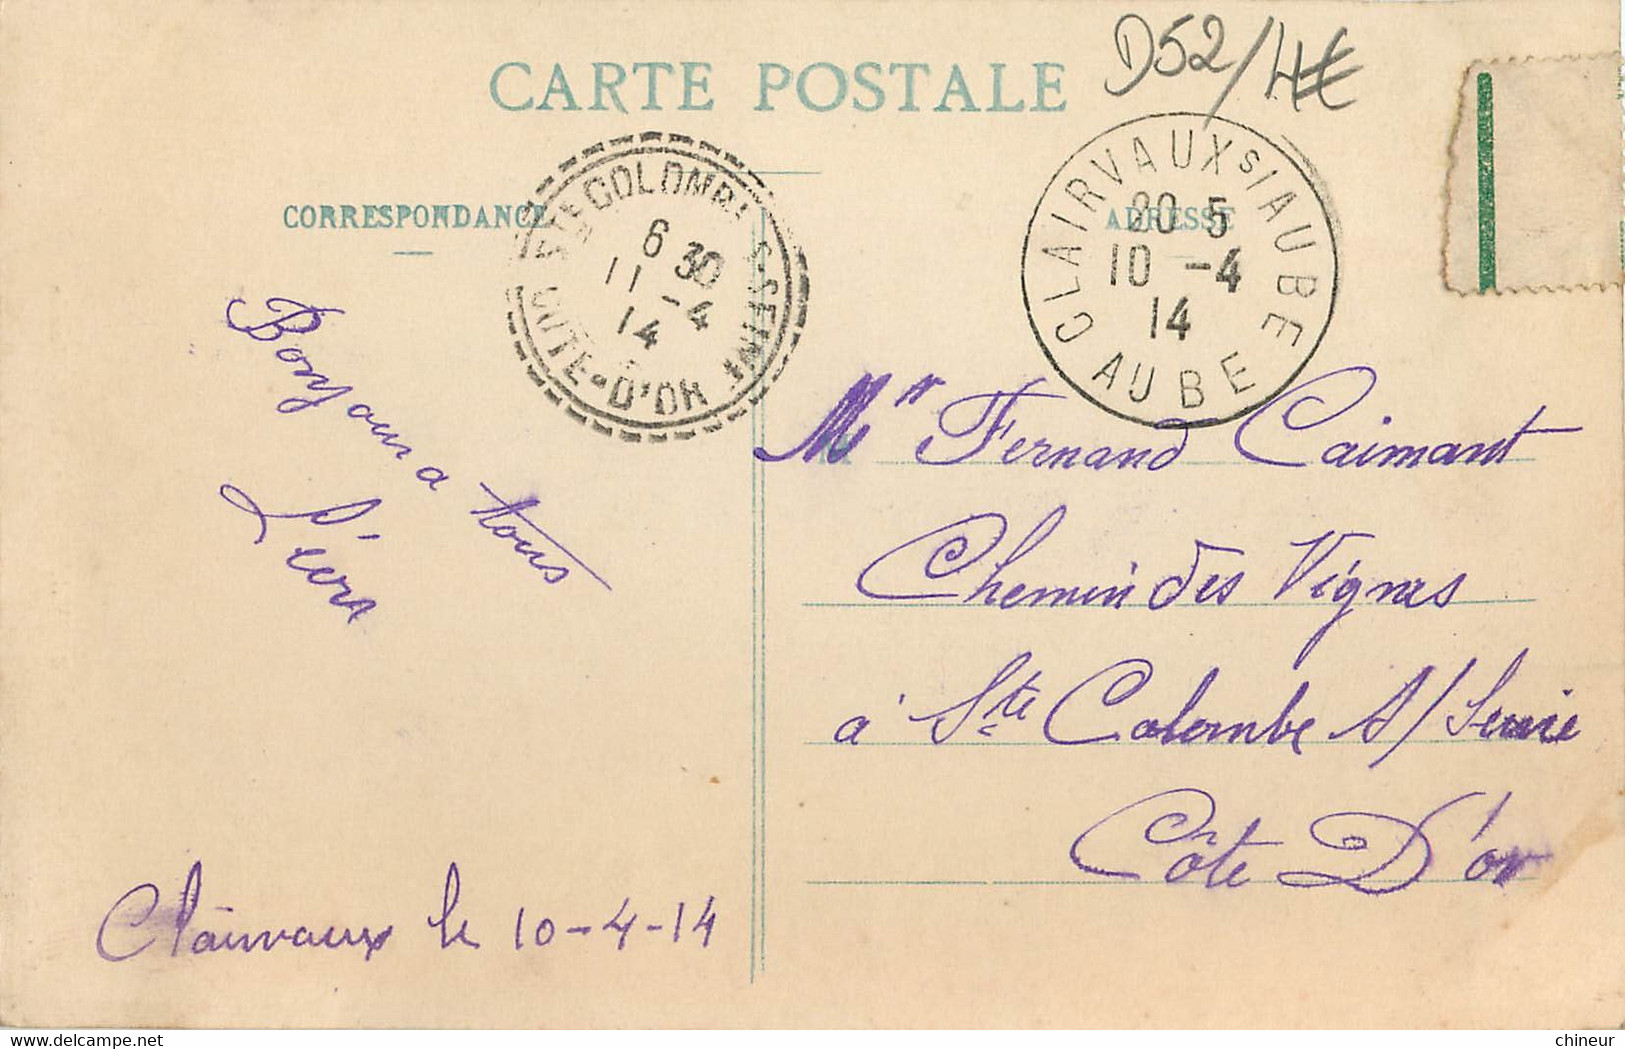 D52/4€
CARTE POSTALE
CORRESPONDANCE
ADRESSE
STE COLOMBE S-SEINE
6 30
11 -4
14
COTE-D'OR
CLAIRVAUX S/ AUBE
20 5
10 -4
14
AUBE
Bonjour a tous
Léon
Clairvaux le 10-4-14
Mr Fernand Caimant
Chemin des Vignes
à Ste Colombe s/ Seine
Côte D'or
chineur